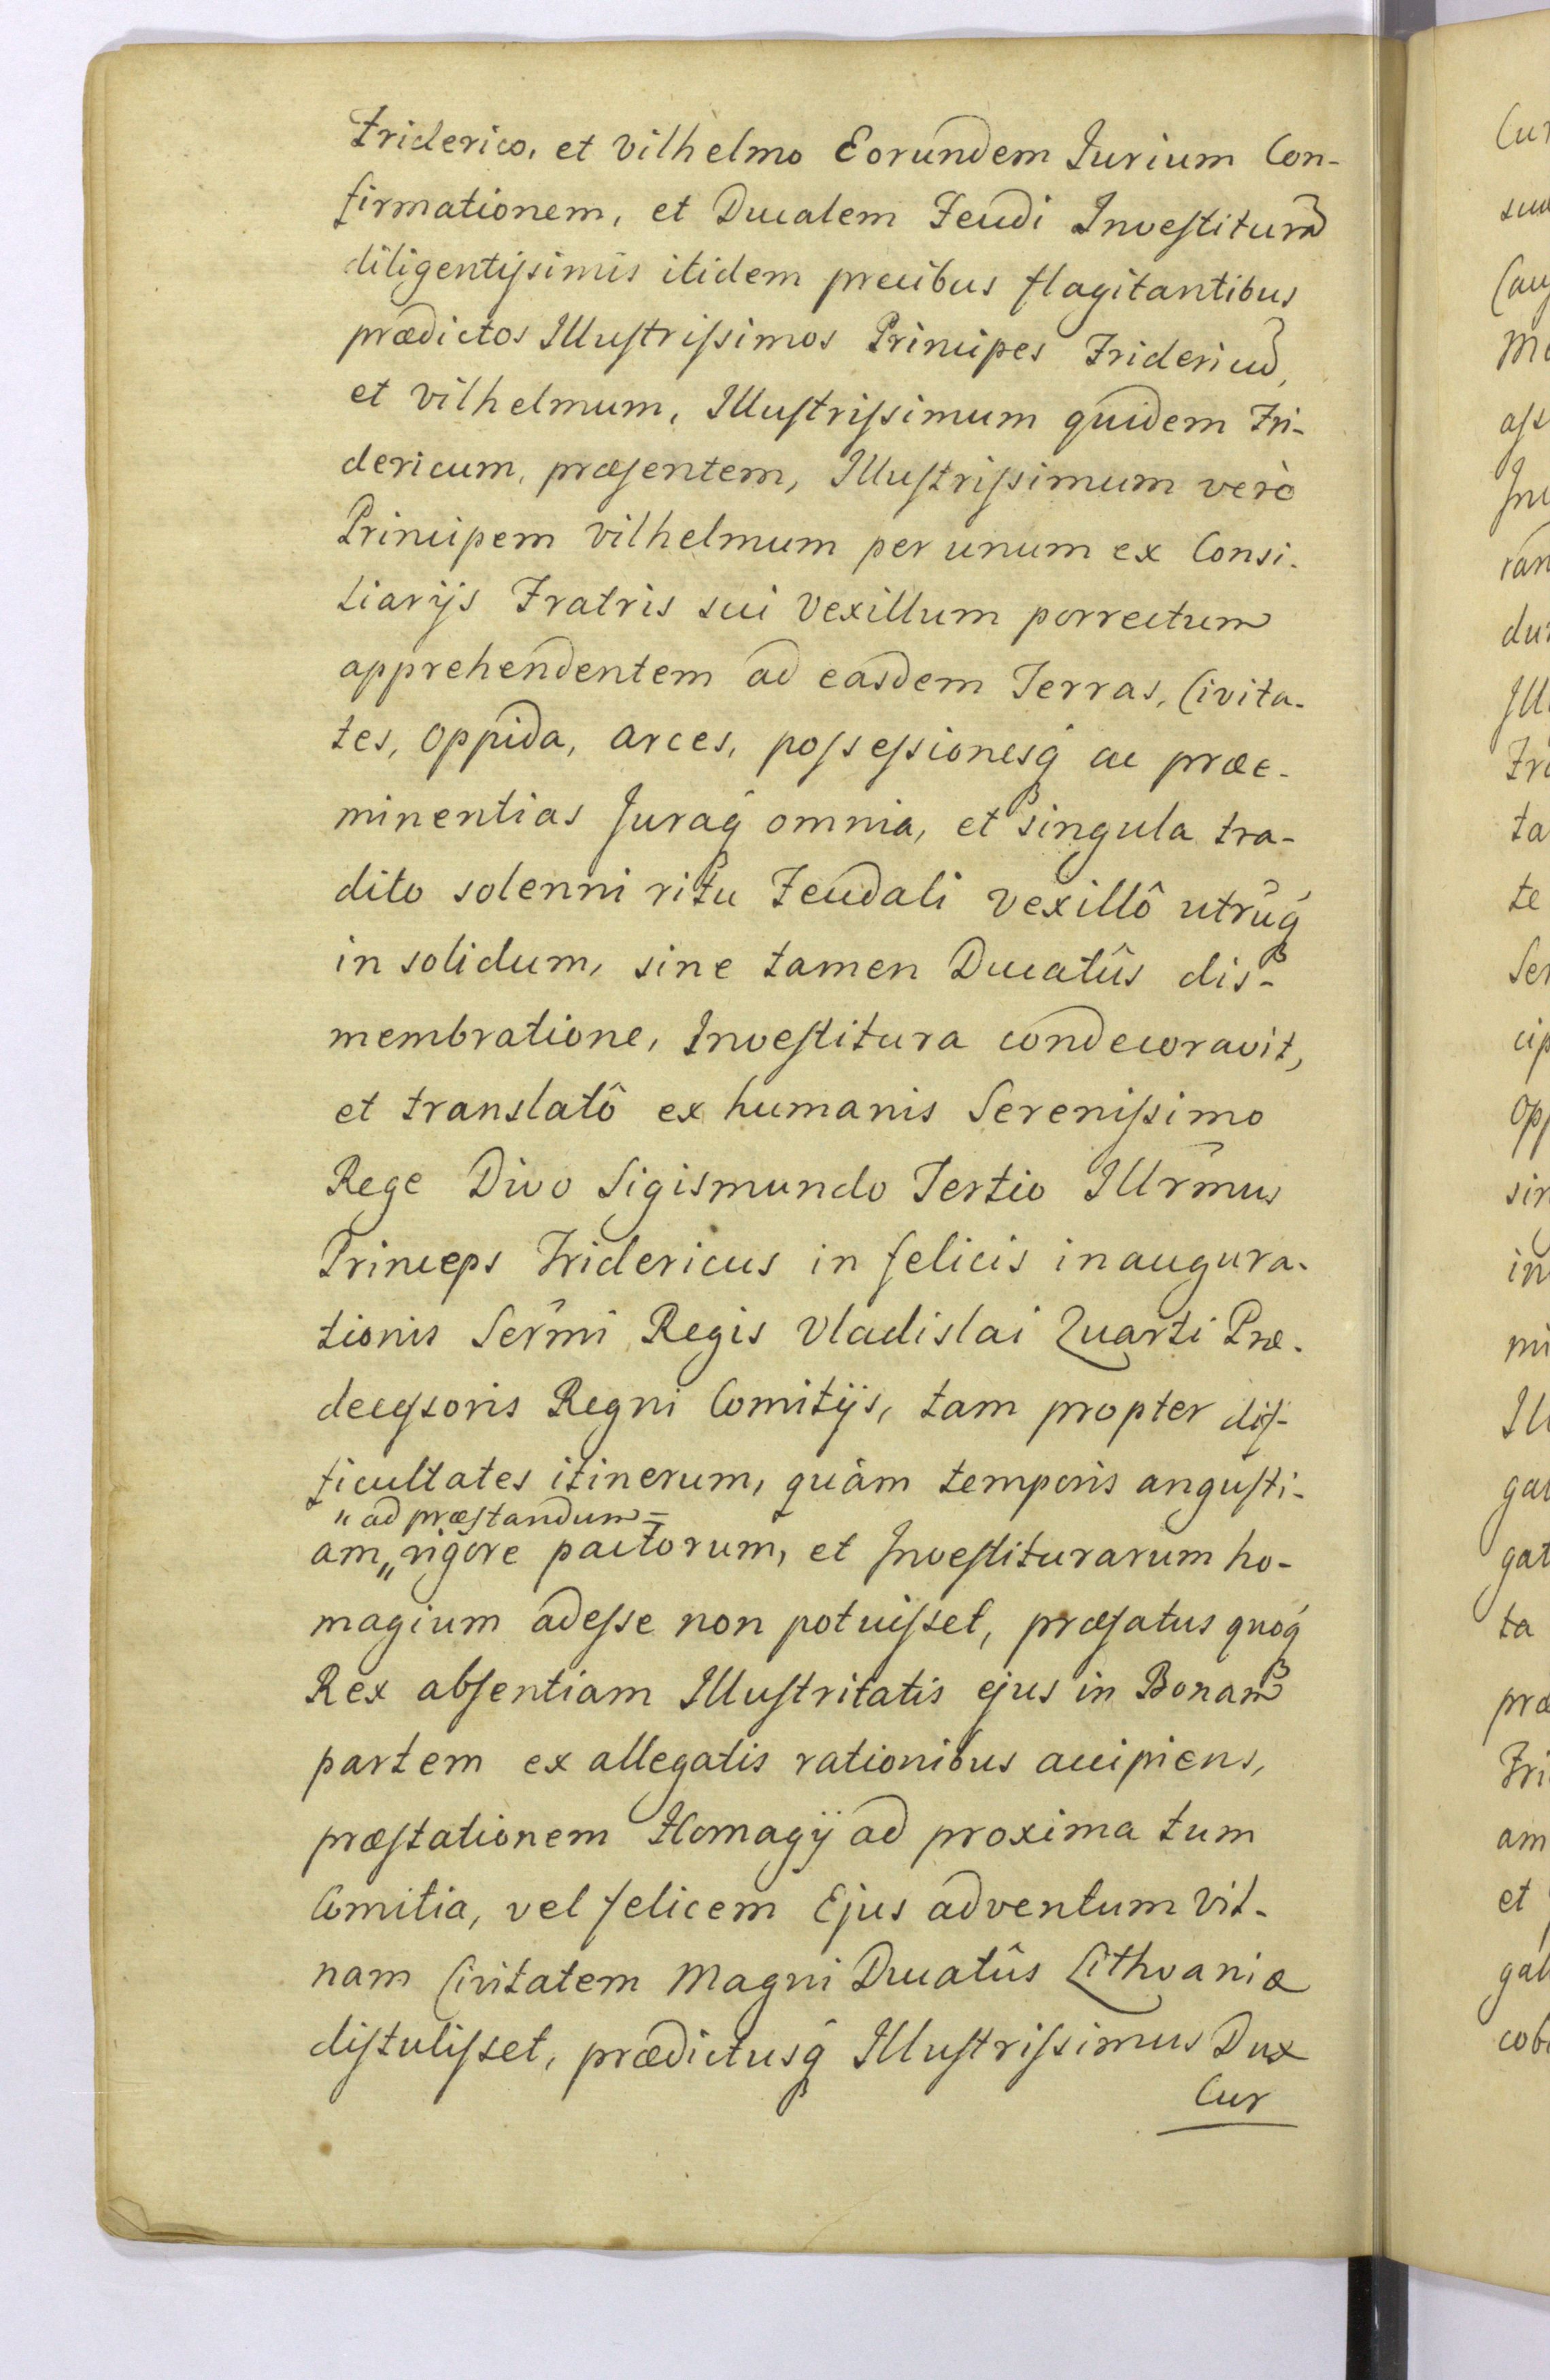 Friderico, et Vilhelmo Eorundem Jurium Con-
firmationem, et Ducalem Feudi Investiturã
diligentissimis itidem precibus flagitantibus
prædictos Illustrissimos Principes Fridericũ,
et Vilhelmum, Illustrissimum quidem Fri-
dericum, præsentem, Illustrissimum verò
Principem Vilhelmum per unum ex Consi-
liarijs Fratris sui Vexillum porrectum
apprehendentem ad easdem Terras, Civita-
tes, Oppida, Arces, possessionesq́ ac præe-
minentias Juraq́ omnia, et singula tra-
dito solenni ritu Feudali Vexillô utrũq́
in solidum, sine tamen Ducatûs dis-
membratione, Investitura condecoravit,
et translatô ex humanis Serenissimo
Rege Divo Sigismundo Tertio Illr̃mus
Princeps Fridericus in felicis inaugura-
tionis Ser̃mi Regis Vladislai Quarti Præ-
decessoris Regni Comitijs, tam propter dif-
ficultates itinerum, quàm temporis angusti-
„ ad præstandum =
am „ rigore pactorum, et Investiturarum ho-
magium adesse non potuisset, præfatus quoq́
Rex absentiam Illustritatis ejus in Bonam
partem ex allegatis rationibus accipiens,
præstationem Homagij ad proxima tum
Comitia, vel felicem Ejus adventum Vil-
nam Civitatem Magni Ducatûs Lithvaniæ
distulisset, prædictusq́ Illustrissimus Dux
Cur